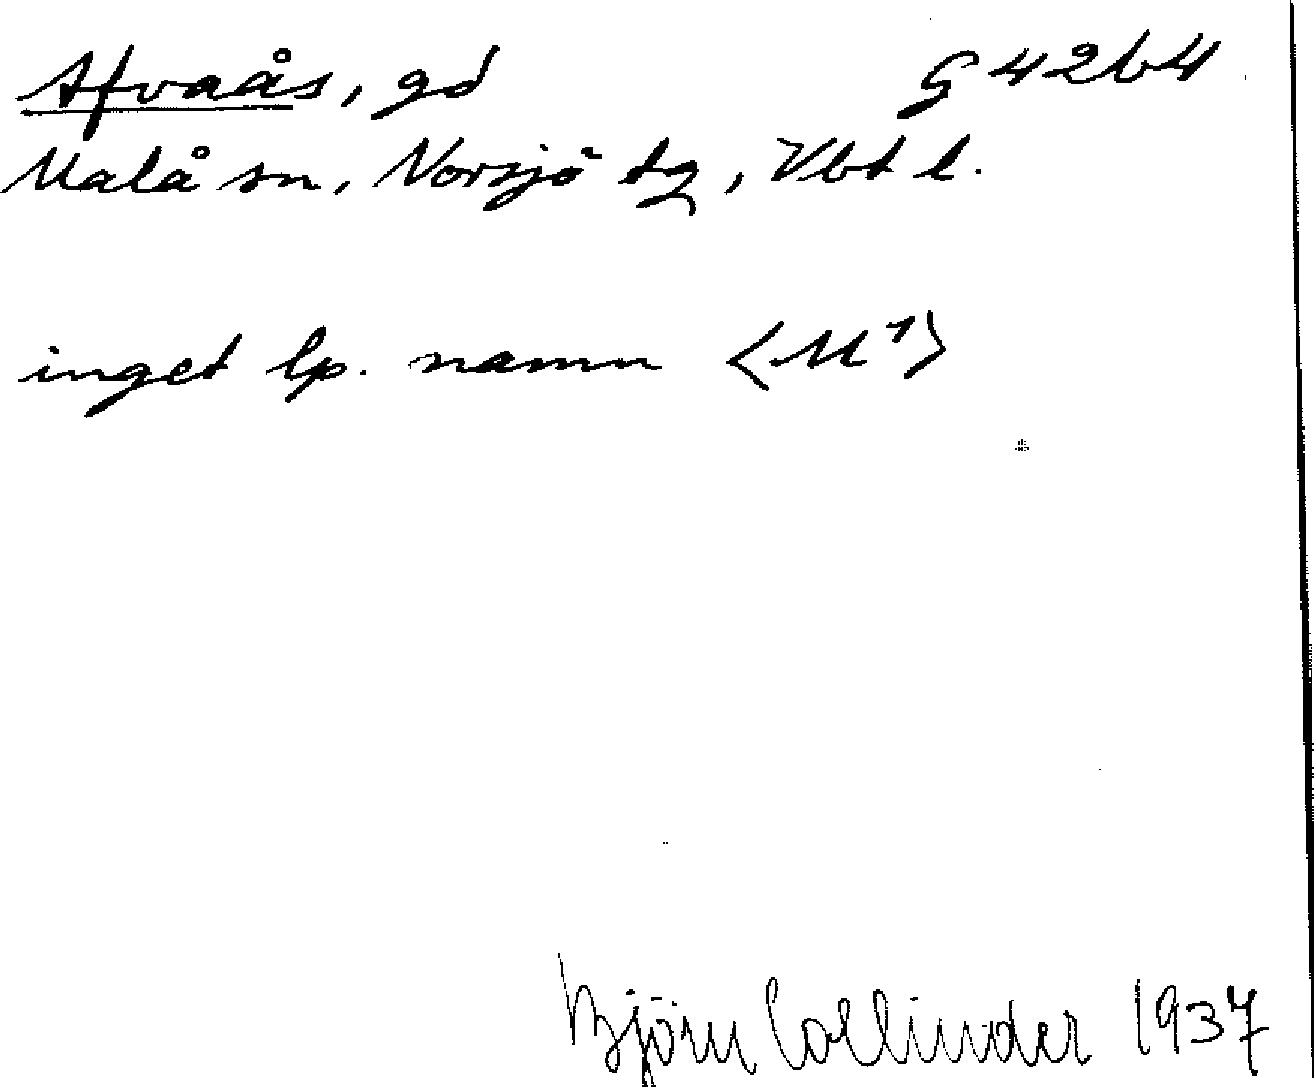 Afvaås, gd G 42b4
Malå sn, Norsjö tg, Vbt l.
inget lp. namn <M¹>
Björn Collinder 1937